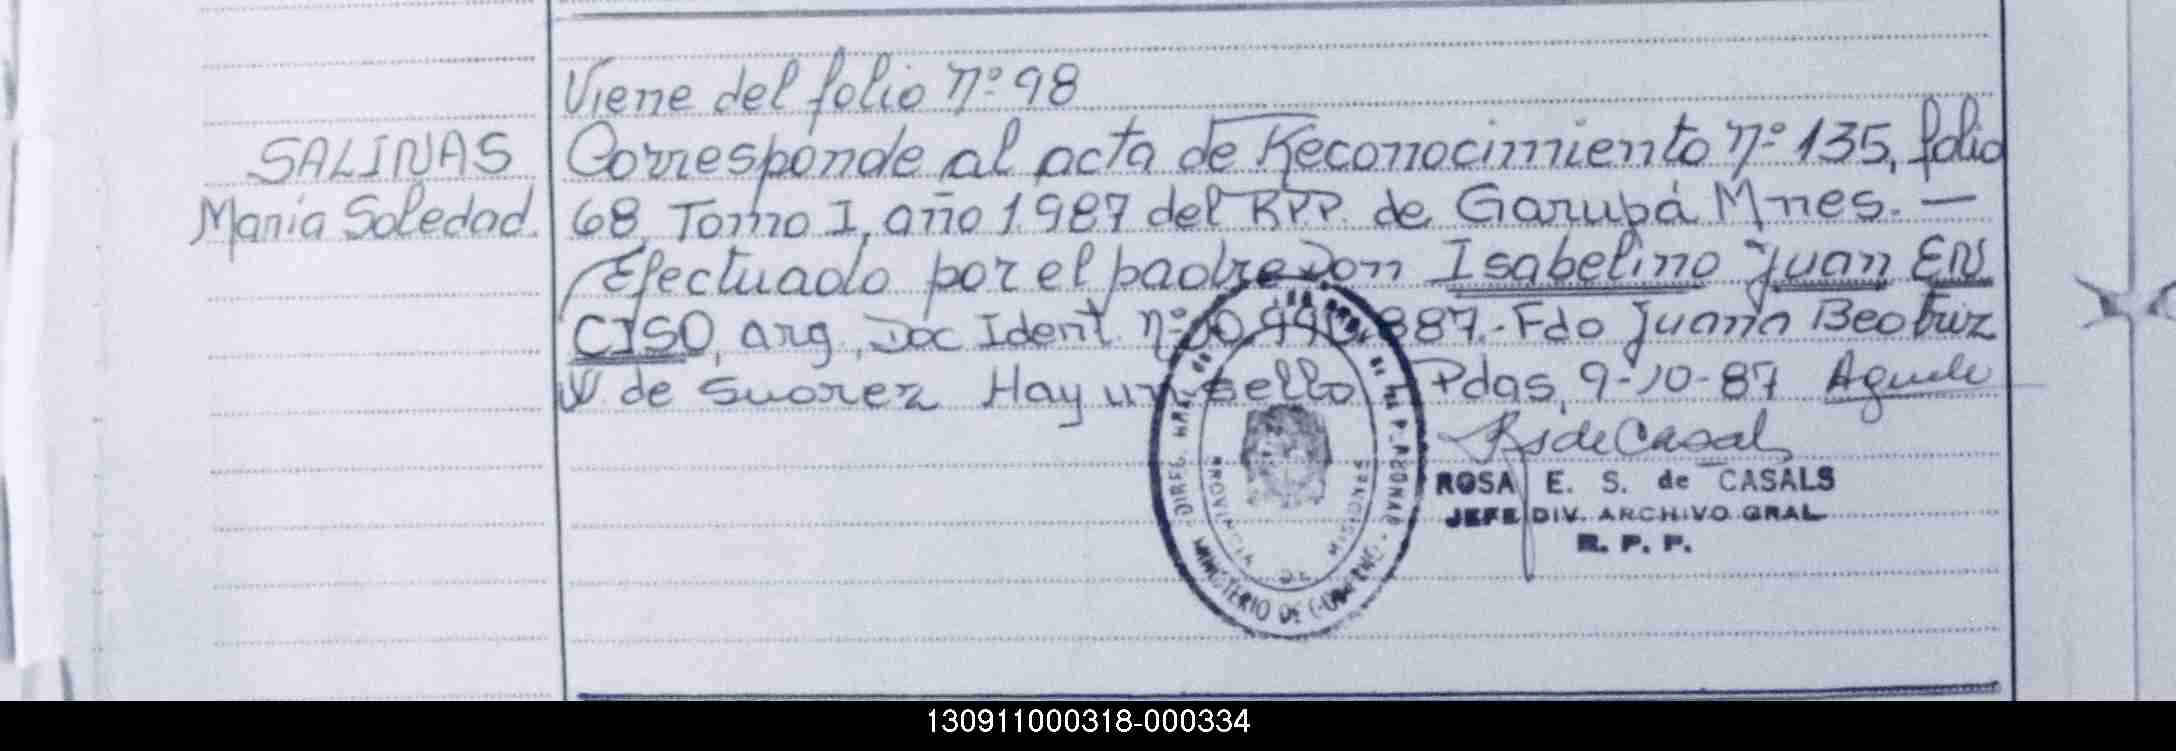 Viene del folio Nº 98
SALINAS
María Soledad.
Corresponde al acta de Reconocimiento Nº 135, folio
68, Tomo I, año 1987 del RPP. de Garupá Mnes. —
Efectuado por el padre Don Isabelino Juan EN
CISO, arg., Doc Ident. Nº 887.- Fdo Juana Beatriz
V. de Suarez Hay un sello Pdas, 9-10-87
RS de Casals
ROSA E. S. de CASALS
JEFE DIV. ARCHIVO GRAL
R. P. P.
PROVINCIA DE MISIONES
MINISTERIO DE GOBIERNO
130911000318-000334